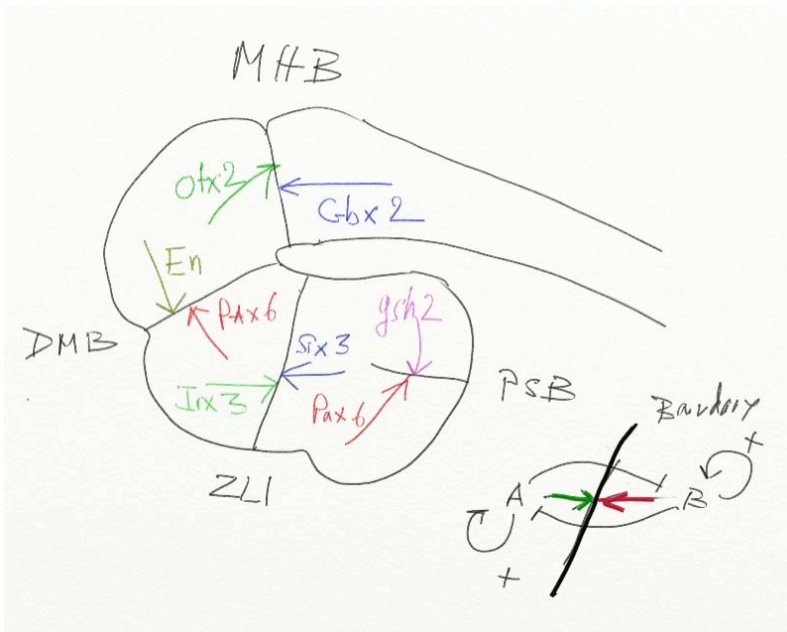 MHB
Otx2
Gbx2
En
PAx6
gsh2
DMB
Six3
Irx3
Pax6
PSB
ZLI
Boundary
+
A
B
+